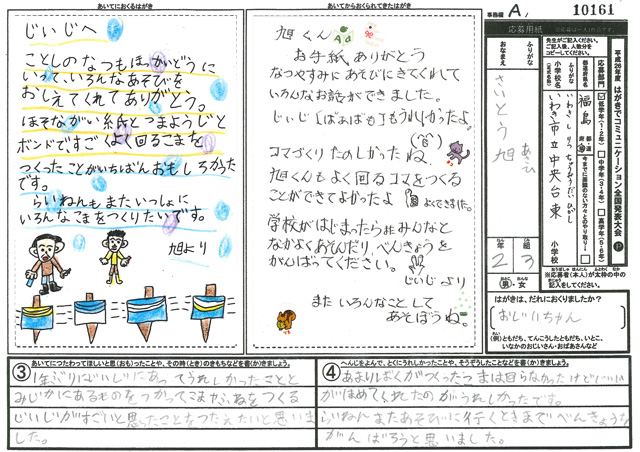 あいてにおくるはがき
じいじへ
ことしのなつもほっかいどうに
いって、いろんなあそびを
おしえてくれてありがとう。
ほそながい紙とつまようじと
ボンドですごくよく回るこまを
つくったことがいちばんおもしろかった
です。
らいねんもまたいっしょに
いろんなこまをつくりたいです。
旭より
あいてからおくられてきたはがき
旭くん
お手紙、ありがとう
なつやすみにあそびにきてくれて
いろんなお話ができました。
じいじ「ばぁばも」もうれしかったよ。
コマづくりたのしかったね。
旭くんもよく回るコマをつくる
ことができてよかったよ
よくできました。
学校がはじまったらみんなと
なかよくあそんだり、べんきょうを
がんばってください。
じいじより
またいろんなことして
あそぼうね。
事務欄 A
10161
応募用紙
平成26年度 はがきでコミュニケーション全国発表大会
先生がご記入ください。
ご記入後、人数分を
コピーしてください。
応募部門
低学年(1・2年)
中学年(3・4年)
高学年(5・6年)
都道府県名
福島
小学校名
いわき市立中央台東
小学校
ふりがな
おなまえ
さいとう 旭
あさひ
2年
3組
男・女
※応募者(本人)が太枠の中の
記入をしてください。
はがきは、だれにおくりましたか?
おじいちゃん
(例)ともだち、てんこうしたともだち、いとこ、
いなかのおじいさん・おばあさんなど
③
あいてにつたわってほしいと思(おも)ったことや、その時(とき)のきもちなどを書(か)きましょう。
1年ぶりにじいじにあってうれしかったことと
みぢかにあるものをつかってこまやふねをつくる
じいじがすごいと思ったことをつたえたいと思いま
した。
④
へんじをよんで、とくにうれしかったことや、そうぞうしたことなどを書(か)きましょう。
あまりぼくがつくったこまは回らなかったけどじいじ
がほめてくれたのがうれしかったです。
らいねんまたあそびに行くときまでべんきょうを
がんばろうと思いました。